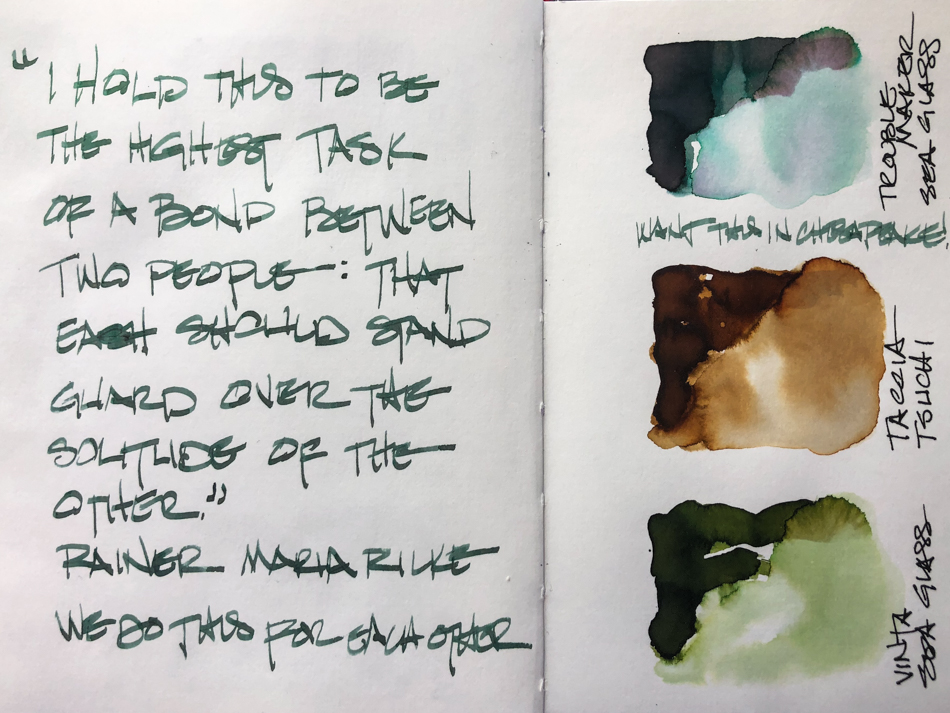 "I HOLD THIS TO BE
THE HIGHEST TASK
OF A BOND BETWEEN
TWO PEOPLE : THAT
EACH SHOULD STAND
GUARD OVER THE
SOLITUDE OF THE
OTHER."
RAINER MARIA RILKE
WE DO THIS FOR EACH OTHER
TROUBLE
MAKER
SEA GLASS
WANT THIS IN CHESAPEAKE!
TACCIA
TSUCHI
VINTA
SEA GLASS